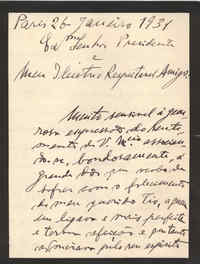 Paris 26 Janeiro 1931
Exmo Senhor Presidente
e
Meu Illustre e Respeitavel Amigo,
Muito sensivel á gene-
rosa expressão do senti-
mento de V. Excia
bondosamente, a
grande dôr que acabo de
sofrer com o falecimento
do meu querido tio, a quem
me ligava a mais perfeita
e terna afeição e
pelo seu espirito